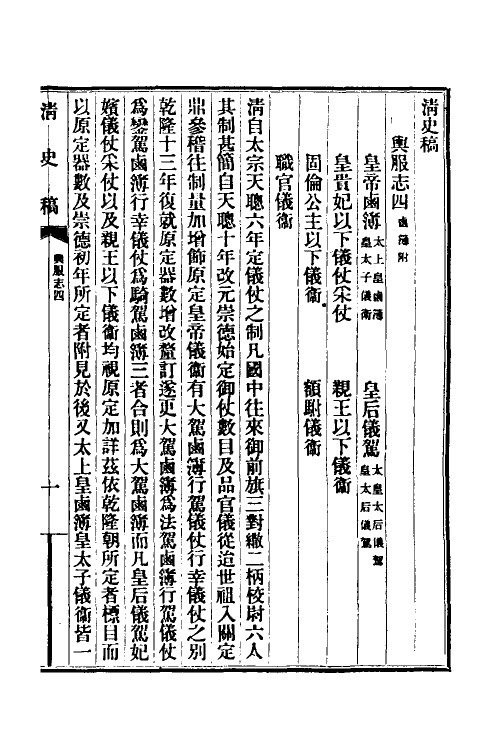 清史稿
輿服志四 鹵簿附
皇帝鹵簿 太上皇鹵簿 皇太子儀衞 皇后儀駕 太皇太后儀駕 皇太后儀駕
皇貴妃以下儀仗采仗 親王以下儀衞
固倫公主以下儀衞 額駙儀衞
職官儀衞
清自太宗天聰六年定儀仗之制凡國中往來御前旗三對繖二柄校尉六人
其制甚簡自天聰十年改元崇德始定御仗數目及品官儀從迨世祖入關定
鼎參稽往制量加增飾原定皇帝儀衞有大駕鹵簿行駕儀仗行幸儀仗之別
乾隆十三年復就原定器數增改釐訂遂更大駕鹵簿爲法駕鹵簿行駕儀仗
爲鑾駕鹵簿行幸儀仗爲騎駕鹵簿三者合則爲大駕鹵簿而凡皇后儀駕妃
嬪儀仗采仗以及親王以下儀衞均視原定加詳茲依乾隆朝所定者標目而
以原定器數及崇德初年所定者附見於後又太上皇鹵簿皇太子儀衞皆一
清史稿 輿服志四 一